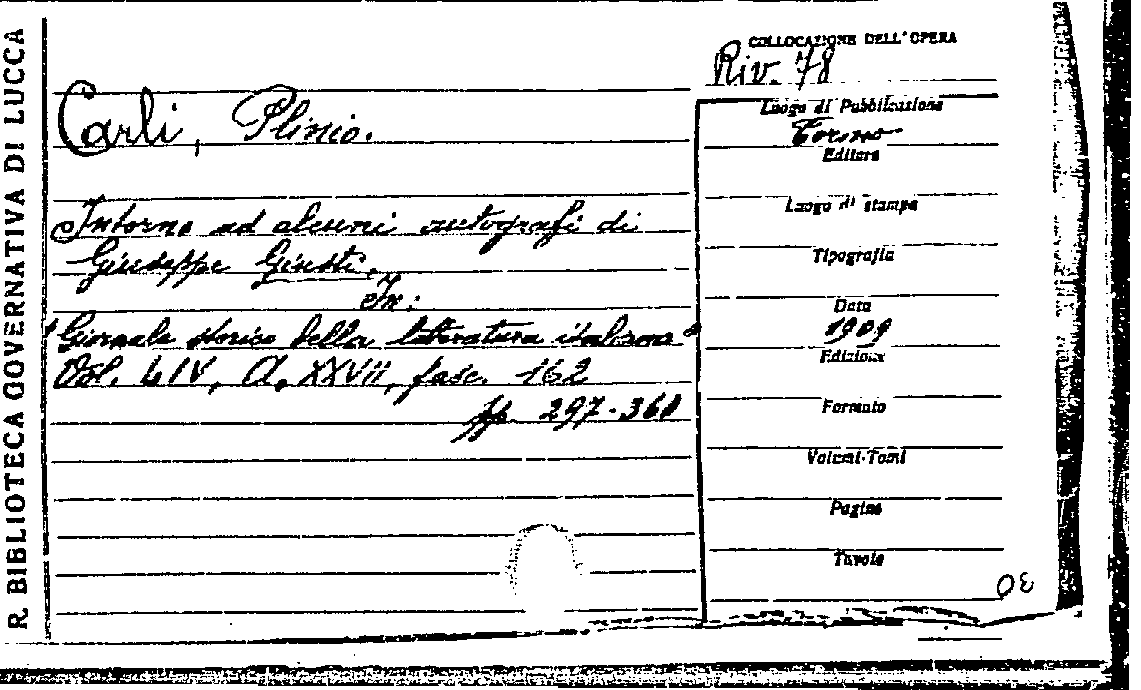 R. BIBLIOTECA GOVERNATIVA DI LUCCA
COLLOCAZIONE DELL'OPERA
Riv. 78
Carli, Plinio.
Intorno ad alcuni autografi di
Giuseppe Giusti.
In:
"Giornale storico della letteratura italiana"
Vol. LIV, A. XXVII, fasc. 162
pp. 297-360
Luogo di Pubblicazione
Torino
Editore
Luogo di stampa
Tipografia
Data
1909
Edizione
Formato
Volumi-Tomi
Pagine
Tavole